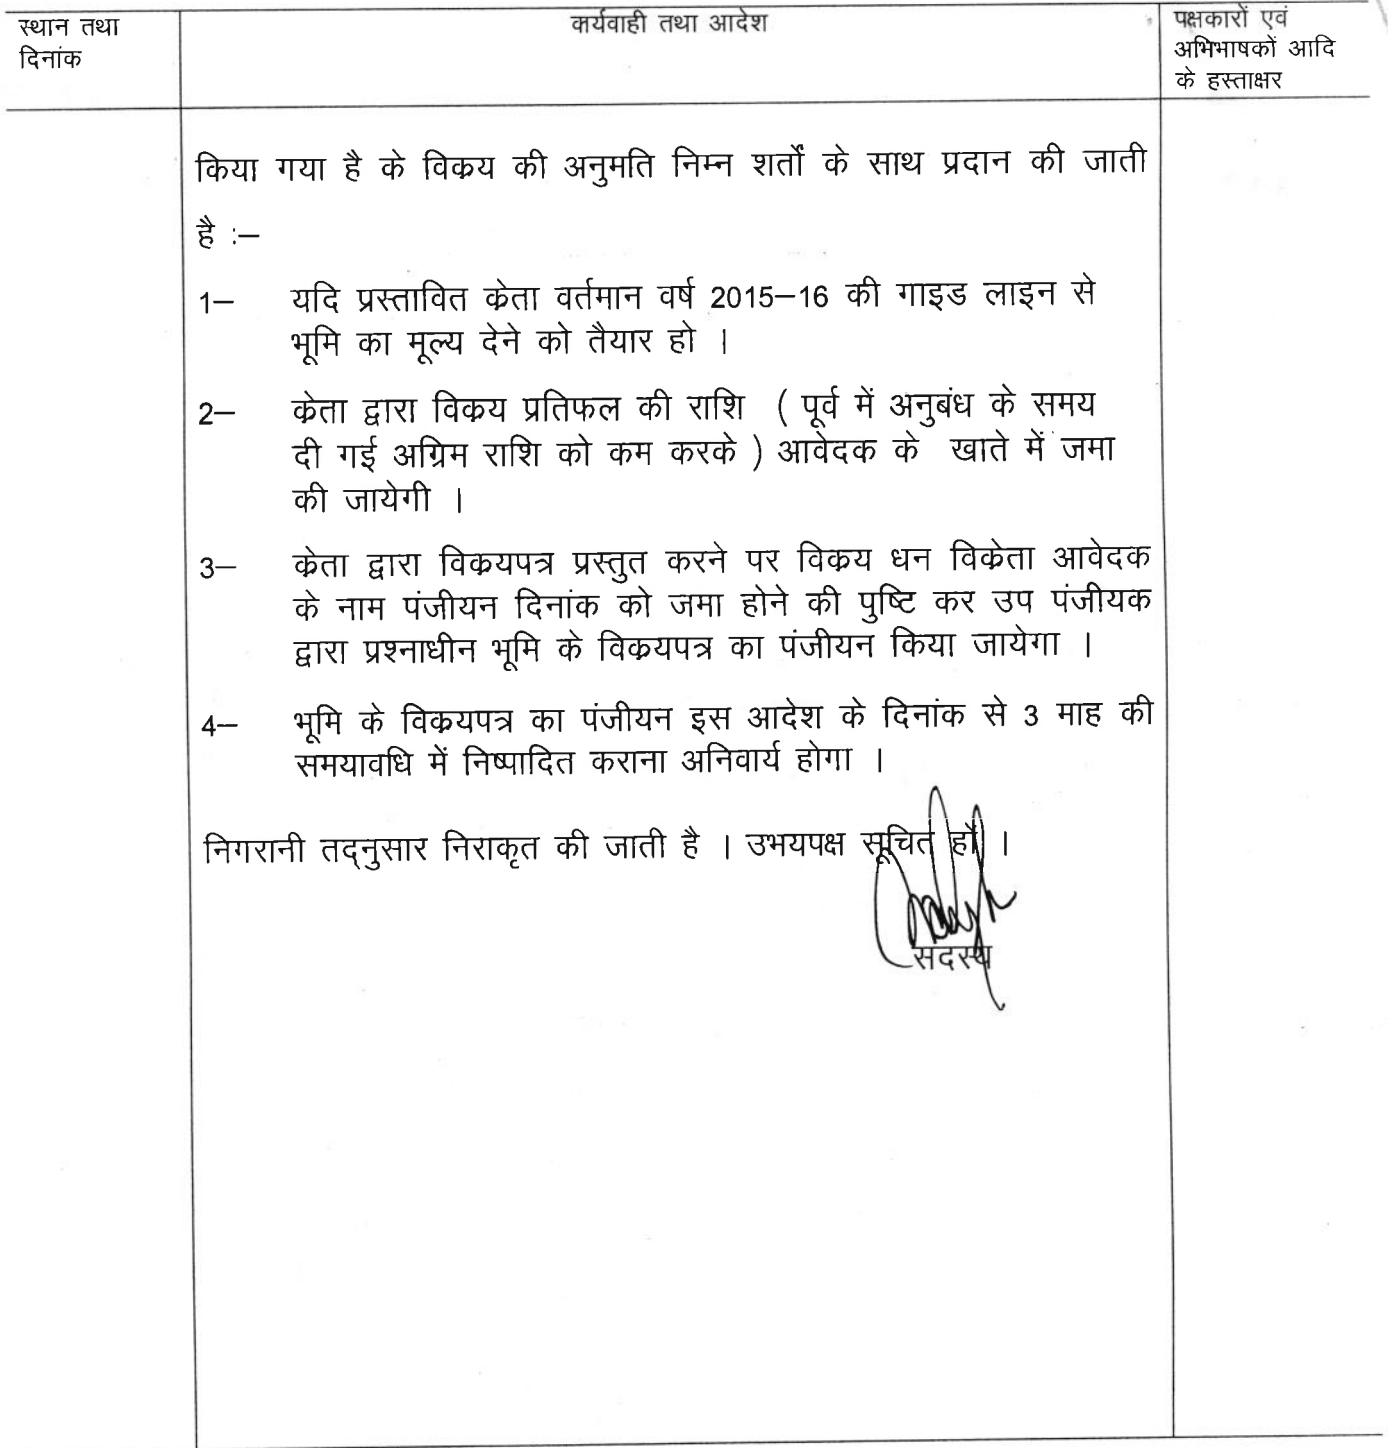 स्थान तथा
दिनांक
कार्यवाही तथा आदेश
पक्षकारों एवं
अभिभाषकों आदि
के हस्ताक्षर
किया गया है के विक्रय की अनुमति निम्न शर्तों के साथ प्रदान की जाती
है :–
1– यदि प्रस्तावित क्रेता वर्तमान वर्ष 2015–16 की गाइड लाइन से
भूमि का मूल्य देने को तैयार हो ।
2– क्रेता द्वारा विक्रय प्रतिफल की राशि ( पूर्व में अनुबंध के समय
दी गई अग्रिम राशि को कम करके ) आवेदक के खाते में जमा
की जायेगी ।
3– क्रेता द्वारा विक्रयपत्र प्रस्तुत करने पर विक्रय धन विक्रेता आवेदक
के नाम पंजीयन दिनांक को जमा होने की पुष्टि कर उप पंजीयक
द्वारा प्रश्नाधीन भूमि के विक्रयपत्र का पंजीयन किया जायेगा ।
4– भूमि के विक्रयपत्र का पंजीयन इस आदेश के दिनांक से 3 माह की
समयावधि में निष्पादित कराना अनिवार्य होगा ।
निगरानी तद्नुसार निराकृत की जाती है । उभयपक्ष सूचित हों ।
सदस्य